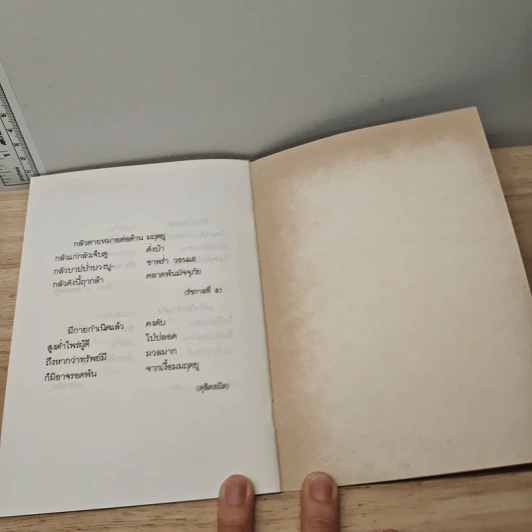 กลัวตายหมายต่อต้าน มฤตยู
กลัวแก่กลัวเจ็บดู ดั่งบ้า
กลัวบาปบำบวงบู- ชาพร่ำ วอนแฮ
กลัวดั่งนี้ฤๅกล้า คลาดพ้นมัจจุภัย
(รัชกาลที่ ๕)
มีกายกำเนิดแล้ว คงดับ
สูงต่ำไพร่ผู้ดี ไป่ปลอด
ถึงหากว่าทรัพย์มี มวลมาก
ก็มิอาจรอดพ้น จากเงื้อมมฤตยู
(ดุสิตสมิต)